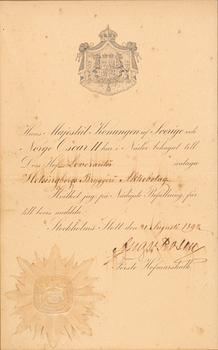 Hans Majestät Konungen af Sverige och
Norge Oscar II har i Nåder behagat till
Dess Hof Leverantör antaga
Helsingborgs Bryggeri Aktiebolag
Hvilket jag, på Nådigste Befallning, får
till bevis meddela.
Stockholms Slott den 21 Augusti 189
Förste Hofmarskalk